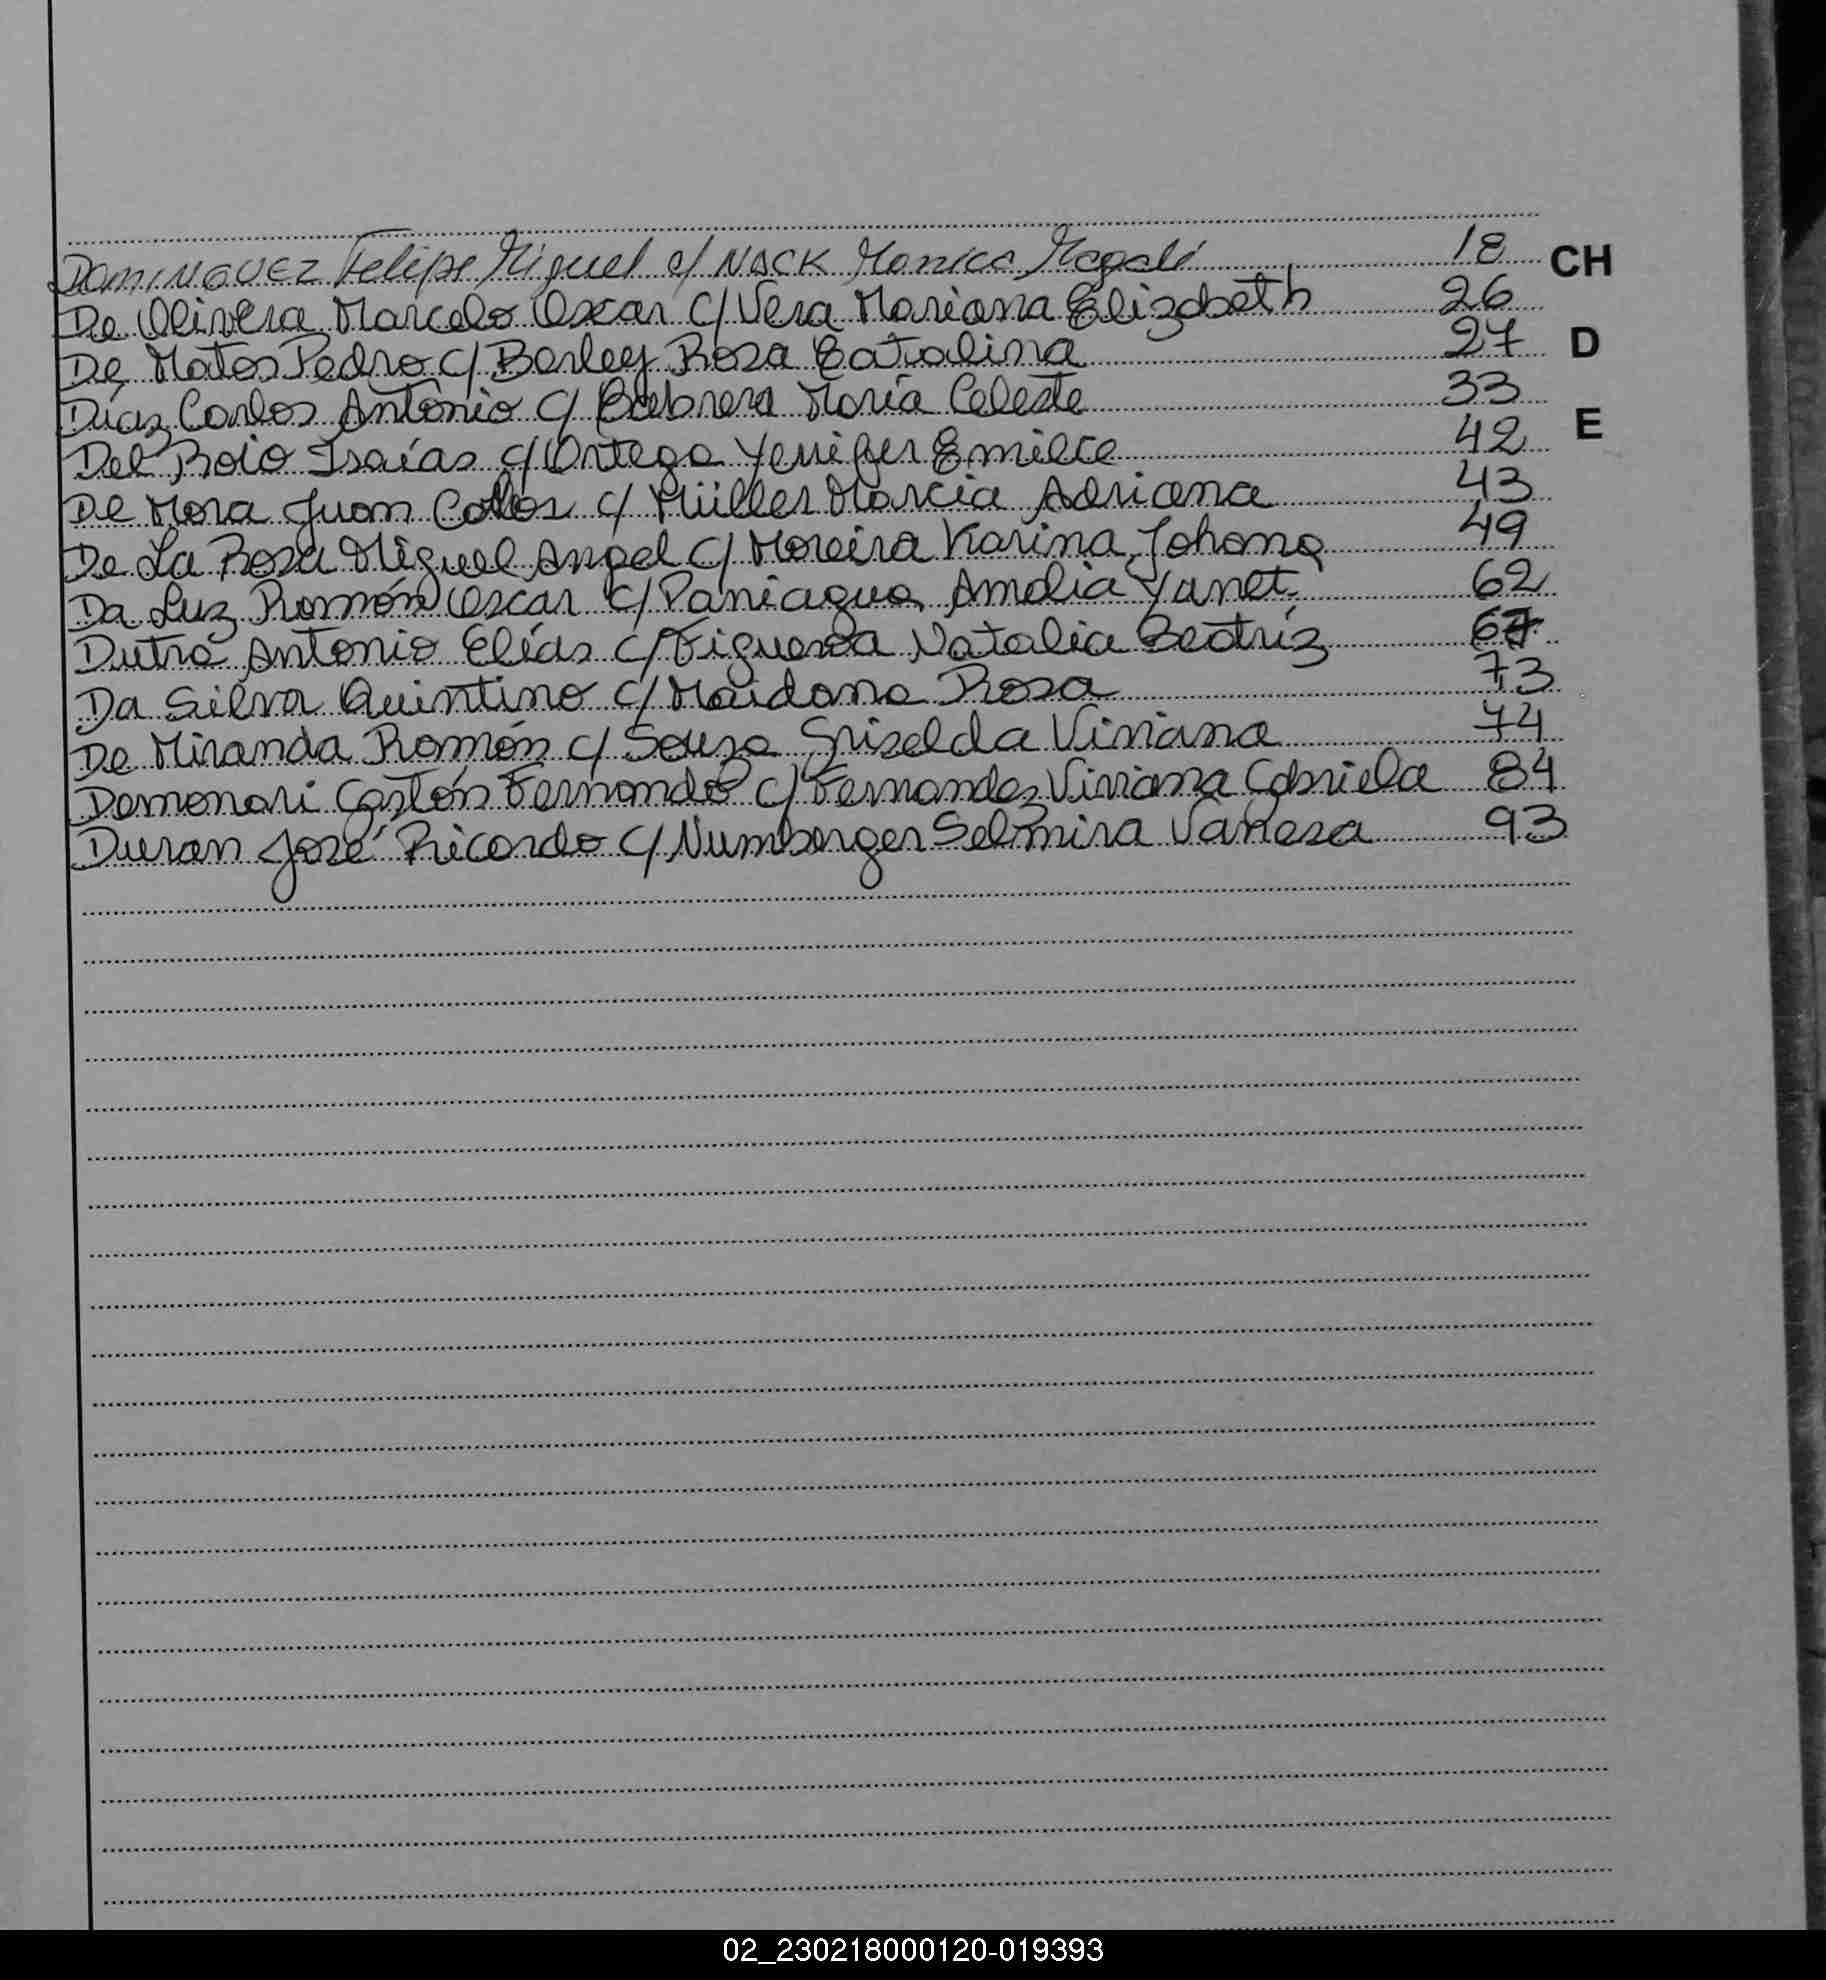 DOMINGUEZ Felipe Miguel c/ NACK Monica Magali 18
CH
De Olivera Marcelo Oscar c/ Vera Mariana Elizabeth 26
De Matos Pedro c/ Berley Rosa Catalina 27
D
Díaz Carlos Antonio c/ Cabrera María Celeste 33
E
Del Roio Isaías c/ Ortega Yenifer Emilce 42
De Mora Juan Carlos c/ Müller Marcia Adriana 43
De La Rosa Miguel Angel c/ Moreira Karina Johana 49
Da Luz Ramón Oscar c/ Paniagua Amelia Yanet 62
Dutra Antonio Elías c/ Figueroa Natalia Beatríz 67
Da Silva Quintino c/ Maidana Rosa 73
De Miranda Ramón c/ Souza Griselda Viviana 74
Demenari Gastón Fernando c/ Fernandez Viviana Gabriela 84
Duran José Ricardo c/ Numberger Selmira Vanesa 93
02_230218000120-019393